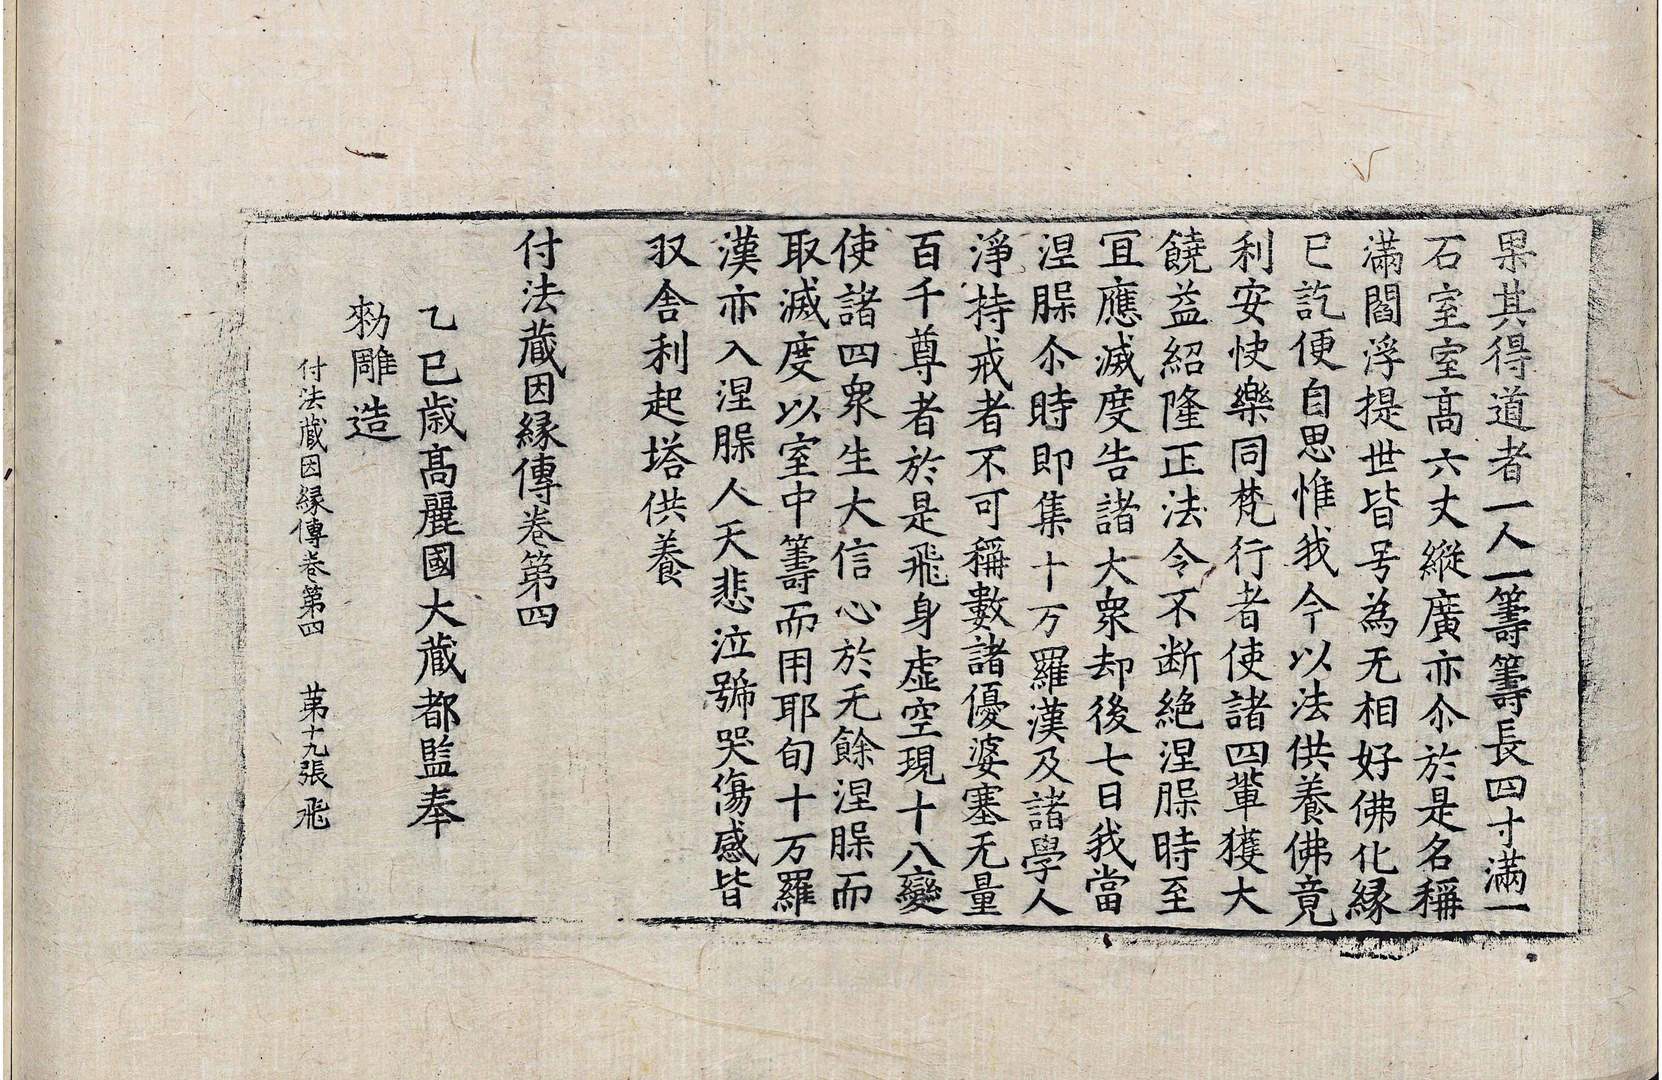 果其得道者一人一籌籌長四寸滿一
石室室髙六丈縱廣亦尒於是名稱
滿閻浮提世皆号為无相好佛化縁
已訖便自思惟我今以法供養佛竟
利安快樂同梵行者使諸四輩獲大
饒益紹隆正法令不断絶涅脲時至
冝應滅度告諸大衆却後七日我當
涅脲尒時即集十万羅漢及諸學人
淨持戒者不可稱數諸優婆塞无量
百千尊者於是飛身虚空現十八變
使諸四衆生大信心於无餘涅脲而
取滅度以室中籌而用耶旬十万羅
漢亦入涅脲人天悲泣號哭傷感皆
収舍利起塔供養
付法蔵因縁傳卷第四
乙巳歳髙麗國大蔵都監奉
勑雕造
付法蔵因縁傳卷第四　苐十九張　飛